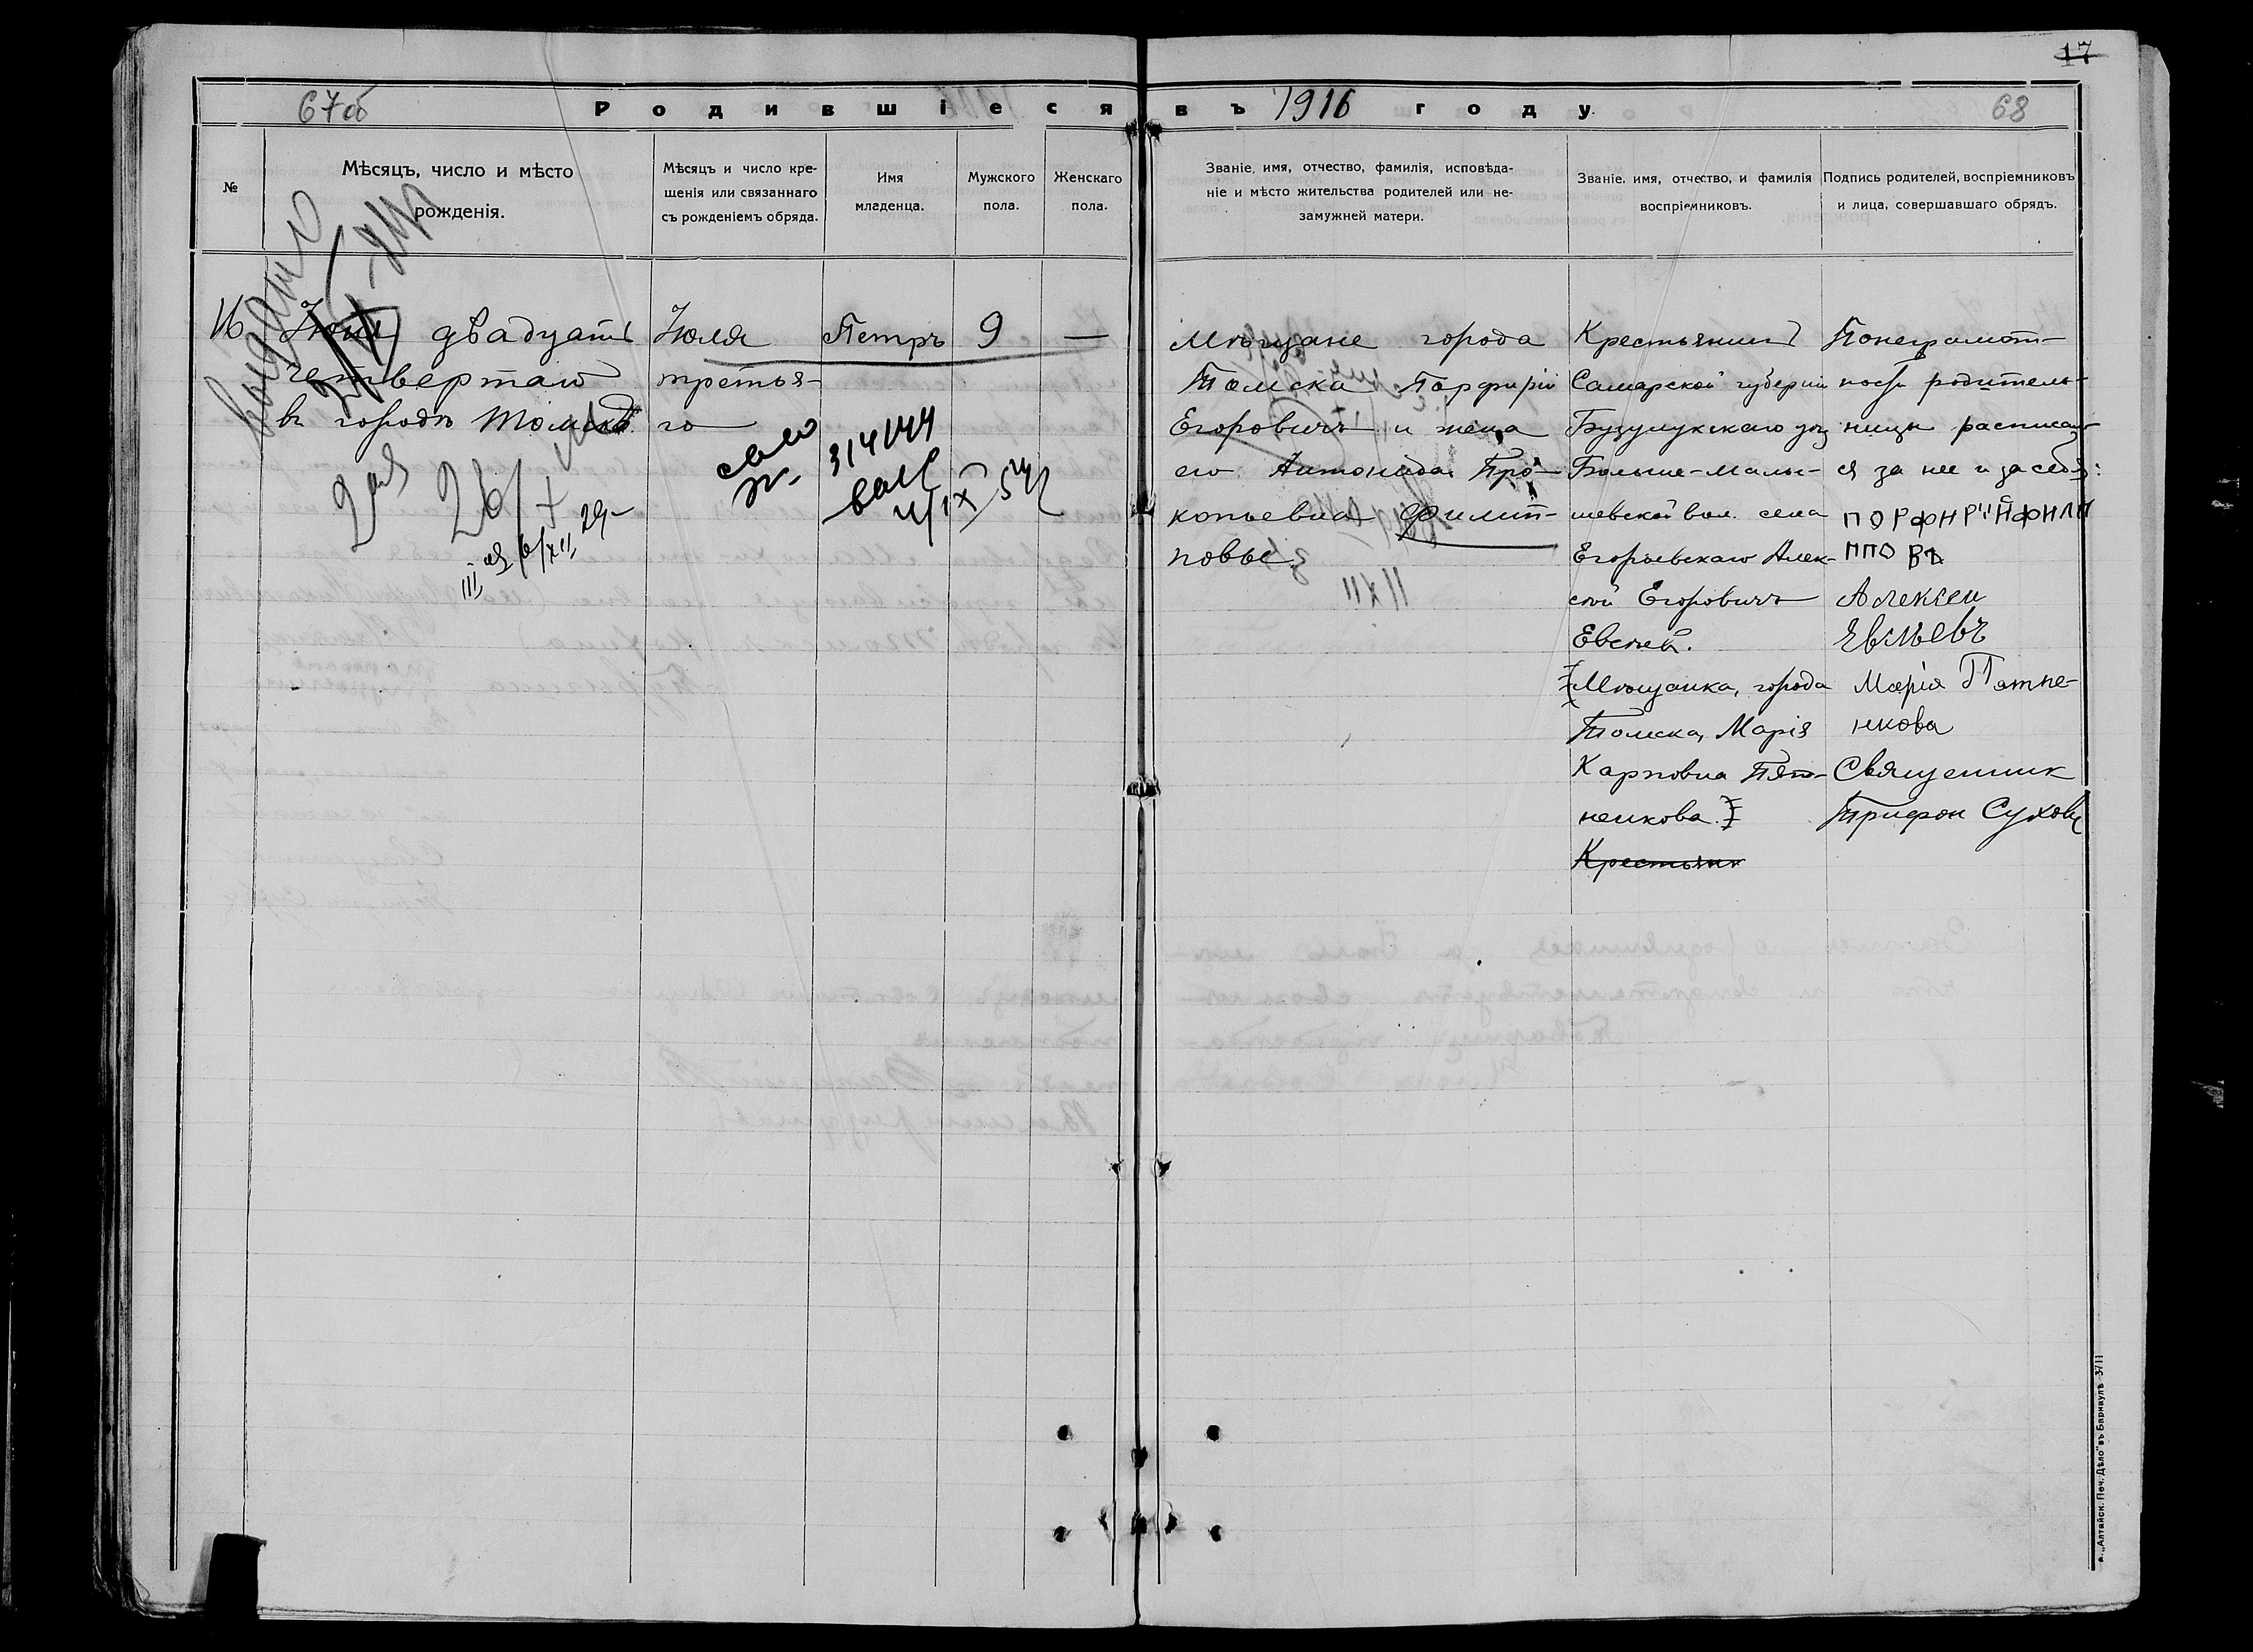 17
67об
Родившіеся въ 1916 году
68
№
Мѣсяцъ, число и мѣсто
рожденія.
Мѣсяцъ и число кре-
щенія или связаннаго
съ рожденіемъ обряда.
Имя
младенца.
Мужского
пола.
Женскаго
пола.
Званіе, имя, отчество, фамилія, исповѣда-
ніе и мѣсто жительства родителей или не-
замужней матери.
Званіе, имя, отчество, и фамилія
воспріемниковъ.
Подпись родителей, воспріемниковъ
и лица, совершавшаго обрядъ.
16
двадцать
четвертаго
въ городѣ Томскѣ
Іюля
третья-
го
Петръ
9
—
Мѣщане города
Томска Порфирій
Егоровичъ и жена
его Антонида Про-
копьевна Филип-
повы.
Крестьянинъ
Самарской губерніи
Бузулукскаго уѣз
Больше-Малы-
шевской вол. села
Егорьевскаго Алек-
сѣй Егоровичъ
Евсѣев.
Мѣщанка, города
Томска, Марія
Карповна Пят-
ненкова.
Крестьянк
Понеграмот-
ности родитель-
ницы расписал
ся за нее и за себя:
ПОРФИРИЙ ФИЛИ
ППОВЪ
Алексеи
Евсѣевъ
Марія Пятне-
нкова
Священник
Трифон Сухов
2я 26/X
III 6/XII 29
3/4 144
4/IX 54
А. „Алтайск. Печ. Дѣло" въ Барнаулѣ 3711